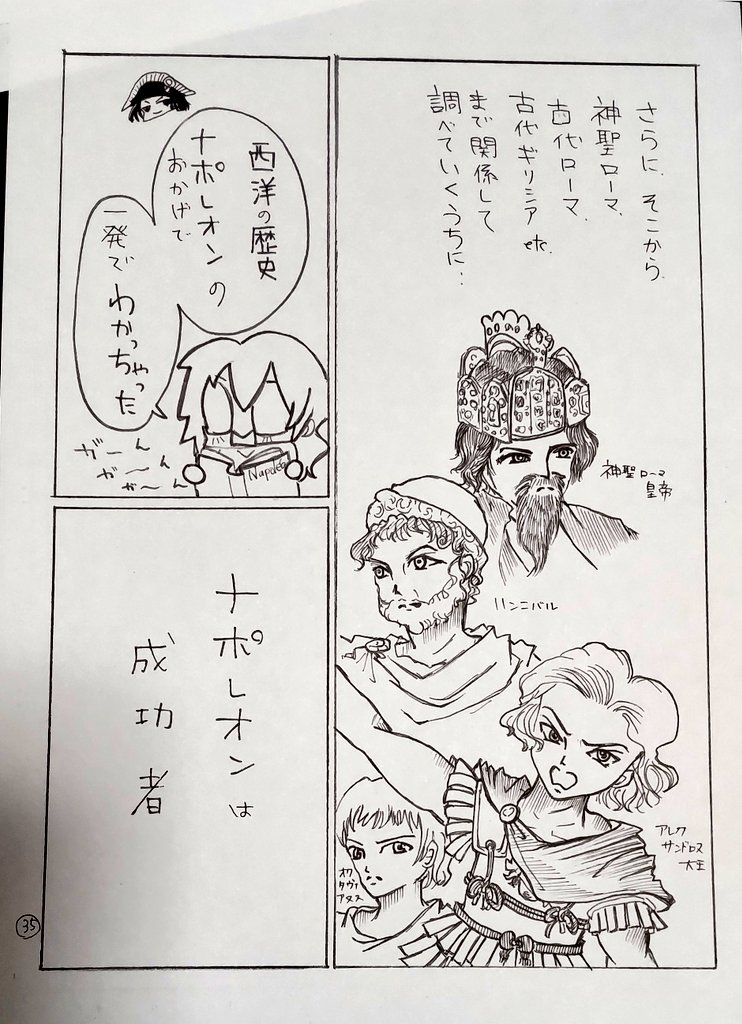 さらに、そこから
神聖ローマ、
古代ローマ、
古代ギリシア etc.
まで関係して
調べていくうちに…
神聖ローマ
皇帝
ハンニバル
アレク
サンドロス
大王
オク
タヴィ
アヌス
西洋の歴史
ナポレオンの
おかげで
一発で
わかっちゃった
ガーん
ガ〜ん
ガ〜ん
Napoléon
ナポレオンは
成功者
35